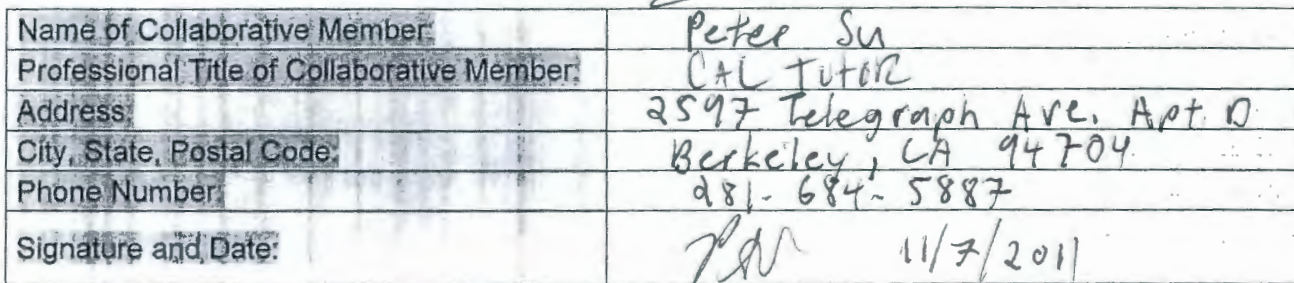 Name of Collaborative Member: Peter Su
Professional Title of Collaborative Member: CAL TUTOR
Address: 2597 Telegraph Ave. Apt. D
City, State, Postal Code: Berkeley, CA 94704
Phone Number: 281-684-5887
Signature and Date: 11/7/2011